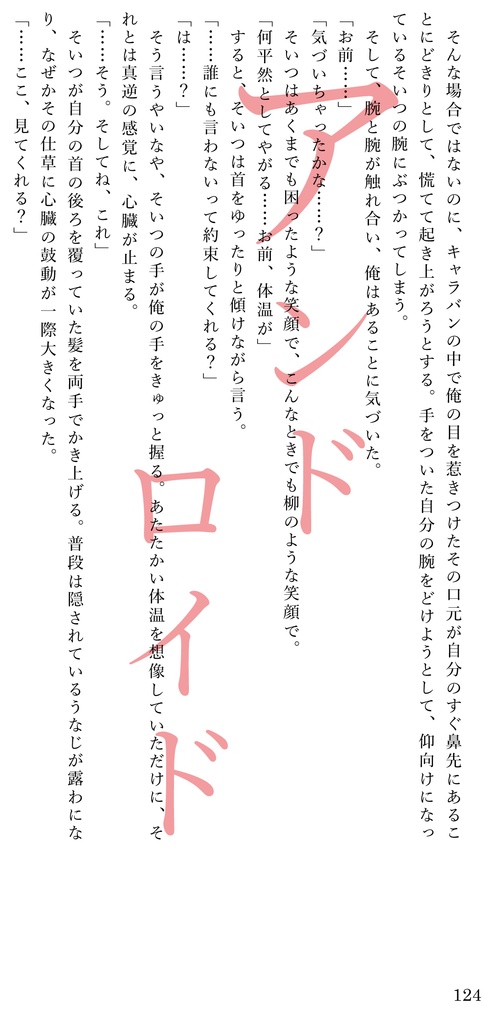 そんな場合ではないのに、キャラバンの中で俺の目を惹きつけたその口元が自分のすぐ鼻先にあるこ
とにどきりとして、慌てて起き上がろうとする。手をついた自分の腕をどけようとして、仰向けになっ
ているそいつの腕にぶつかってしまう。
そして、腕と腕が触れ合い、俺はあることに気づいた。
「お前……」
「気づいちゃったかな……？」
そいつはあくまでも困ったような笑顔で、こんなときでも柳のような笑顔で。
「何平然としてやがる……お前、体温が」
すると、そいつは首をゆったりと傾けながら言う。
「……誰にも言わないって約束してくれる？」
「は……？」
そう言うやいなや、そいつの手が俺の手をきゅっと握る。あたたかい体温を想像していただけに、そ
れとは真逆の感覚に、心臓が止まる。
「……そう。そしてね、これ」
そいつが自分の首の後ろを覆っていた髪を両手でかき上げる。普段は隠されているうなじが露わにな
り、なぜかその仕草に心臓の鼓動が一際大きくなった。
「……ここ、見てくれる？」
アンド
ロイド
124